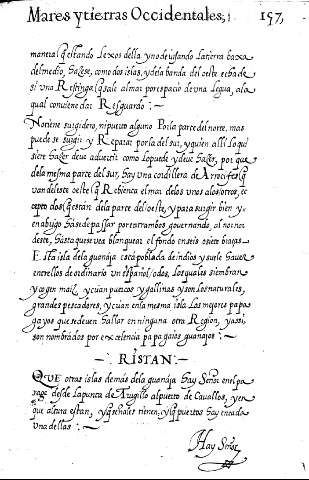 Mares y tierras Occidentales; 157,
manera q̃ estando Lexos della y no deuisando La tierra baxa
del medio, Hazese, como dos islas, y de la banda del oeste echa de
si vna Restinga q̃ sale al mar por espacio de vna Legua, a la
qual conviene dar Resguardo :~
No tiene surgidero, ni puerto alguno Por la parte del norte, mas
puede se surgir y Reparar por la del sur, y quien alli Lo qui
siere Hazer deue aduertir como Lo puede y deue Hazer, por que
de la mesma parte del sur, Hay una cordillera de Arrecifes q̃
van de leste oeste q̃ Rebienta el mar de los vnos a los otros, ex
cepto dos q̃ estan de la parte del oeste, y para surgir bien y
en abrigo Ha se de passar por entrambos gouernando, al nor
deste, Hasta que se vea blanquear el fondo en seis o siete braças
Esta isla de la guanaja esta poblada de indios y suele Hauer
entrellos de ordinario vn español / o dos, Los quales siembran
y cogen maiz y crian puercos y gallinas y son Los naturales,
grandes pescadores, y crian en la mesma isla Los mejores papa
gayos que se deuen Hallar en ninguna otra Region, y assi,
son nombrados por excelencia papagaios guanajos :~
— RISTAN —
QVE otras islas de mas de la guanaja Hay Señor en el pa
rage desde La punta de Trugillo al puerto de Cauallos, y en
que altura estan, y q̃ señales tienen, y q̃ puertos Hay en cada
vna dellas :~
Hay Señor